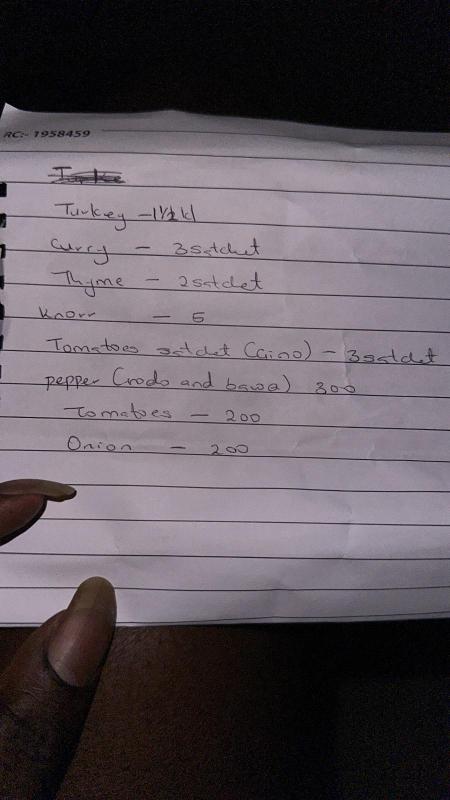 RC:- 1958459
Turkey - 1 1/2 kl
Curry - 3 satchet
Thyme - 2 satchet
Knorr - 5
Tomatoes satchet (Gino) - 3 satchet
pepper (rodo and bawa) 300
Tomatoes - 200
Onion - 200